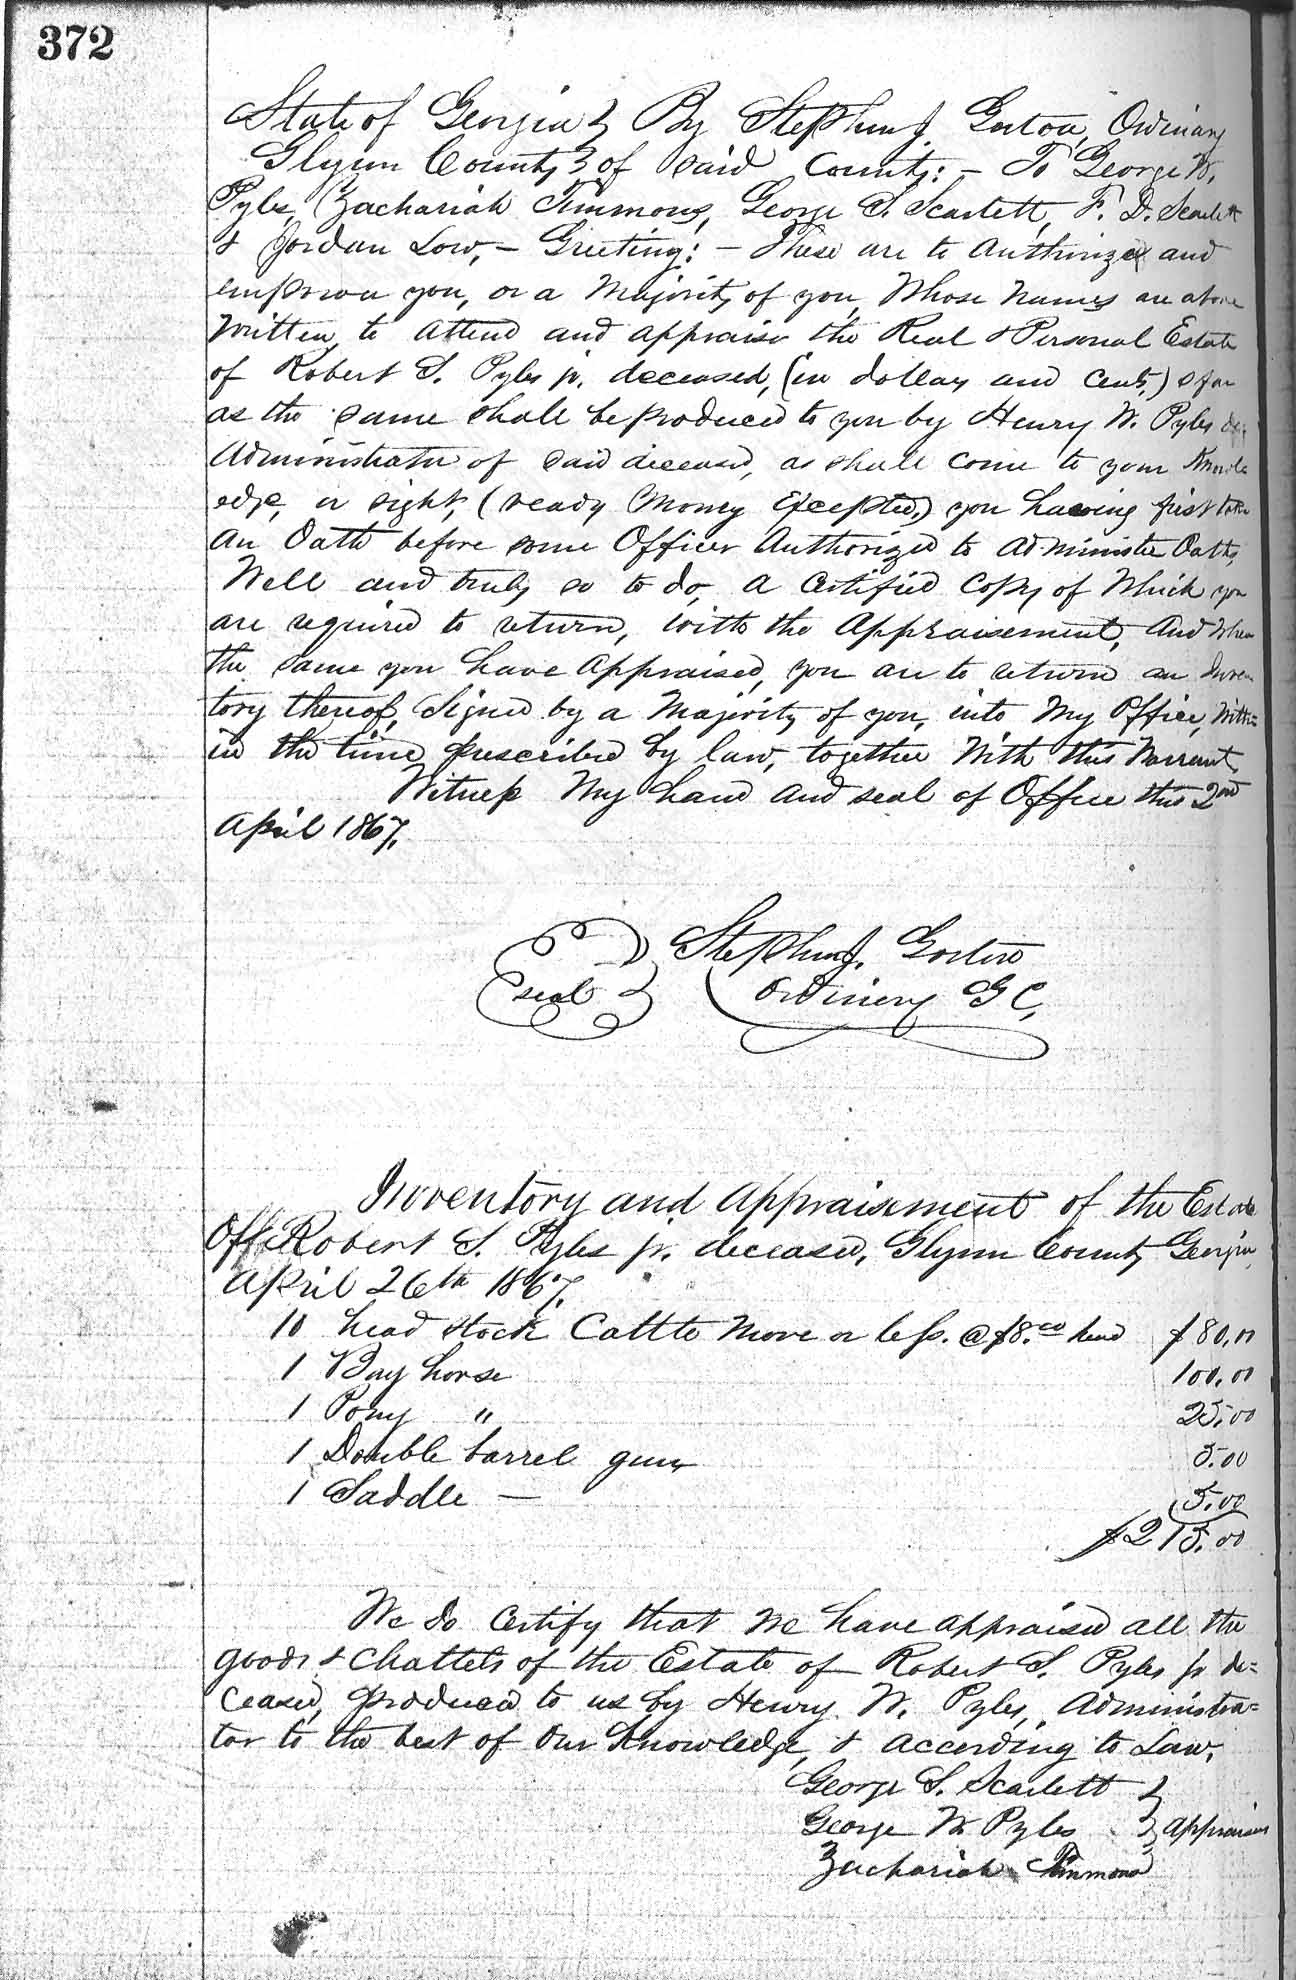 372
State of Georgia } By Stephen J. Gorton, Ordinary
Glynn County } of said County: – To George W.
Pyles, Zachariah Timmons, George S. Scarlett, F. D. Scarlett
& Jordan Low, – Greeting: – These are to Authorize and
empower you, or a Majority of you, Whose Names are above
Written, to attend and appraise the Real & Personal Estate
of Robert S. Pyles jr. deceased, (in dollars and Cents,) so far
as the same shall be produced to you by Henry W. Pyles
Administrator of said deceased, as shall come to your Knowl
edge, or sight, (ready Money Excepted,) you having first taken
An Oath before some Officer Authorized to Administer Oaths,
Well and truly so to do, a Certified Copy of Which you
are required to return, with the Appraisement, And When
the same you have Appraised, you are to return an Inven
tory thereof, Signed by a Majority of you, into My Office, With=
in the time prescribed by law, together With this Warrant,
Witness My hand and seal of Office this 2nd
April 1867.
Stephen J. Gorton
seal Ordinary G C,
Inventory and Appraisement of the Estate
Off Robert S. Pyles jr. deceased, Glynn County Georgia,
April 26th 1867.
10 head stock Cattle More or less. @ $8.00 head $80.00
1 Bay horse 100.00
1 Pony " 25.00
1 Double barrel gun 5.00
1 Saddle — 5.00
$215.00
We do Certify that We have appraised all the
goods & Chattels of the Estate of Robert S. Pyles jr de=
ceased, produced to us by Henry W. Pyles, Administra=
tor to the best of Our Knowledge, & according to Law.
George S. Scarlett }
George W. Pyles } Appraisers
Zachariah Timmons